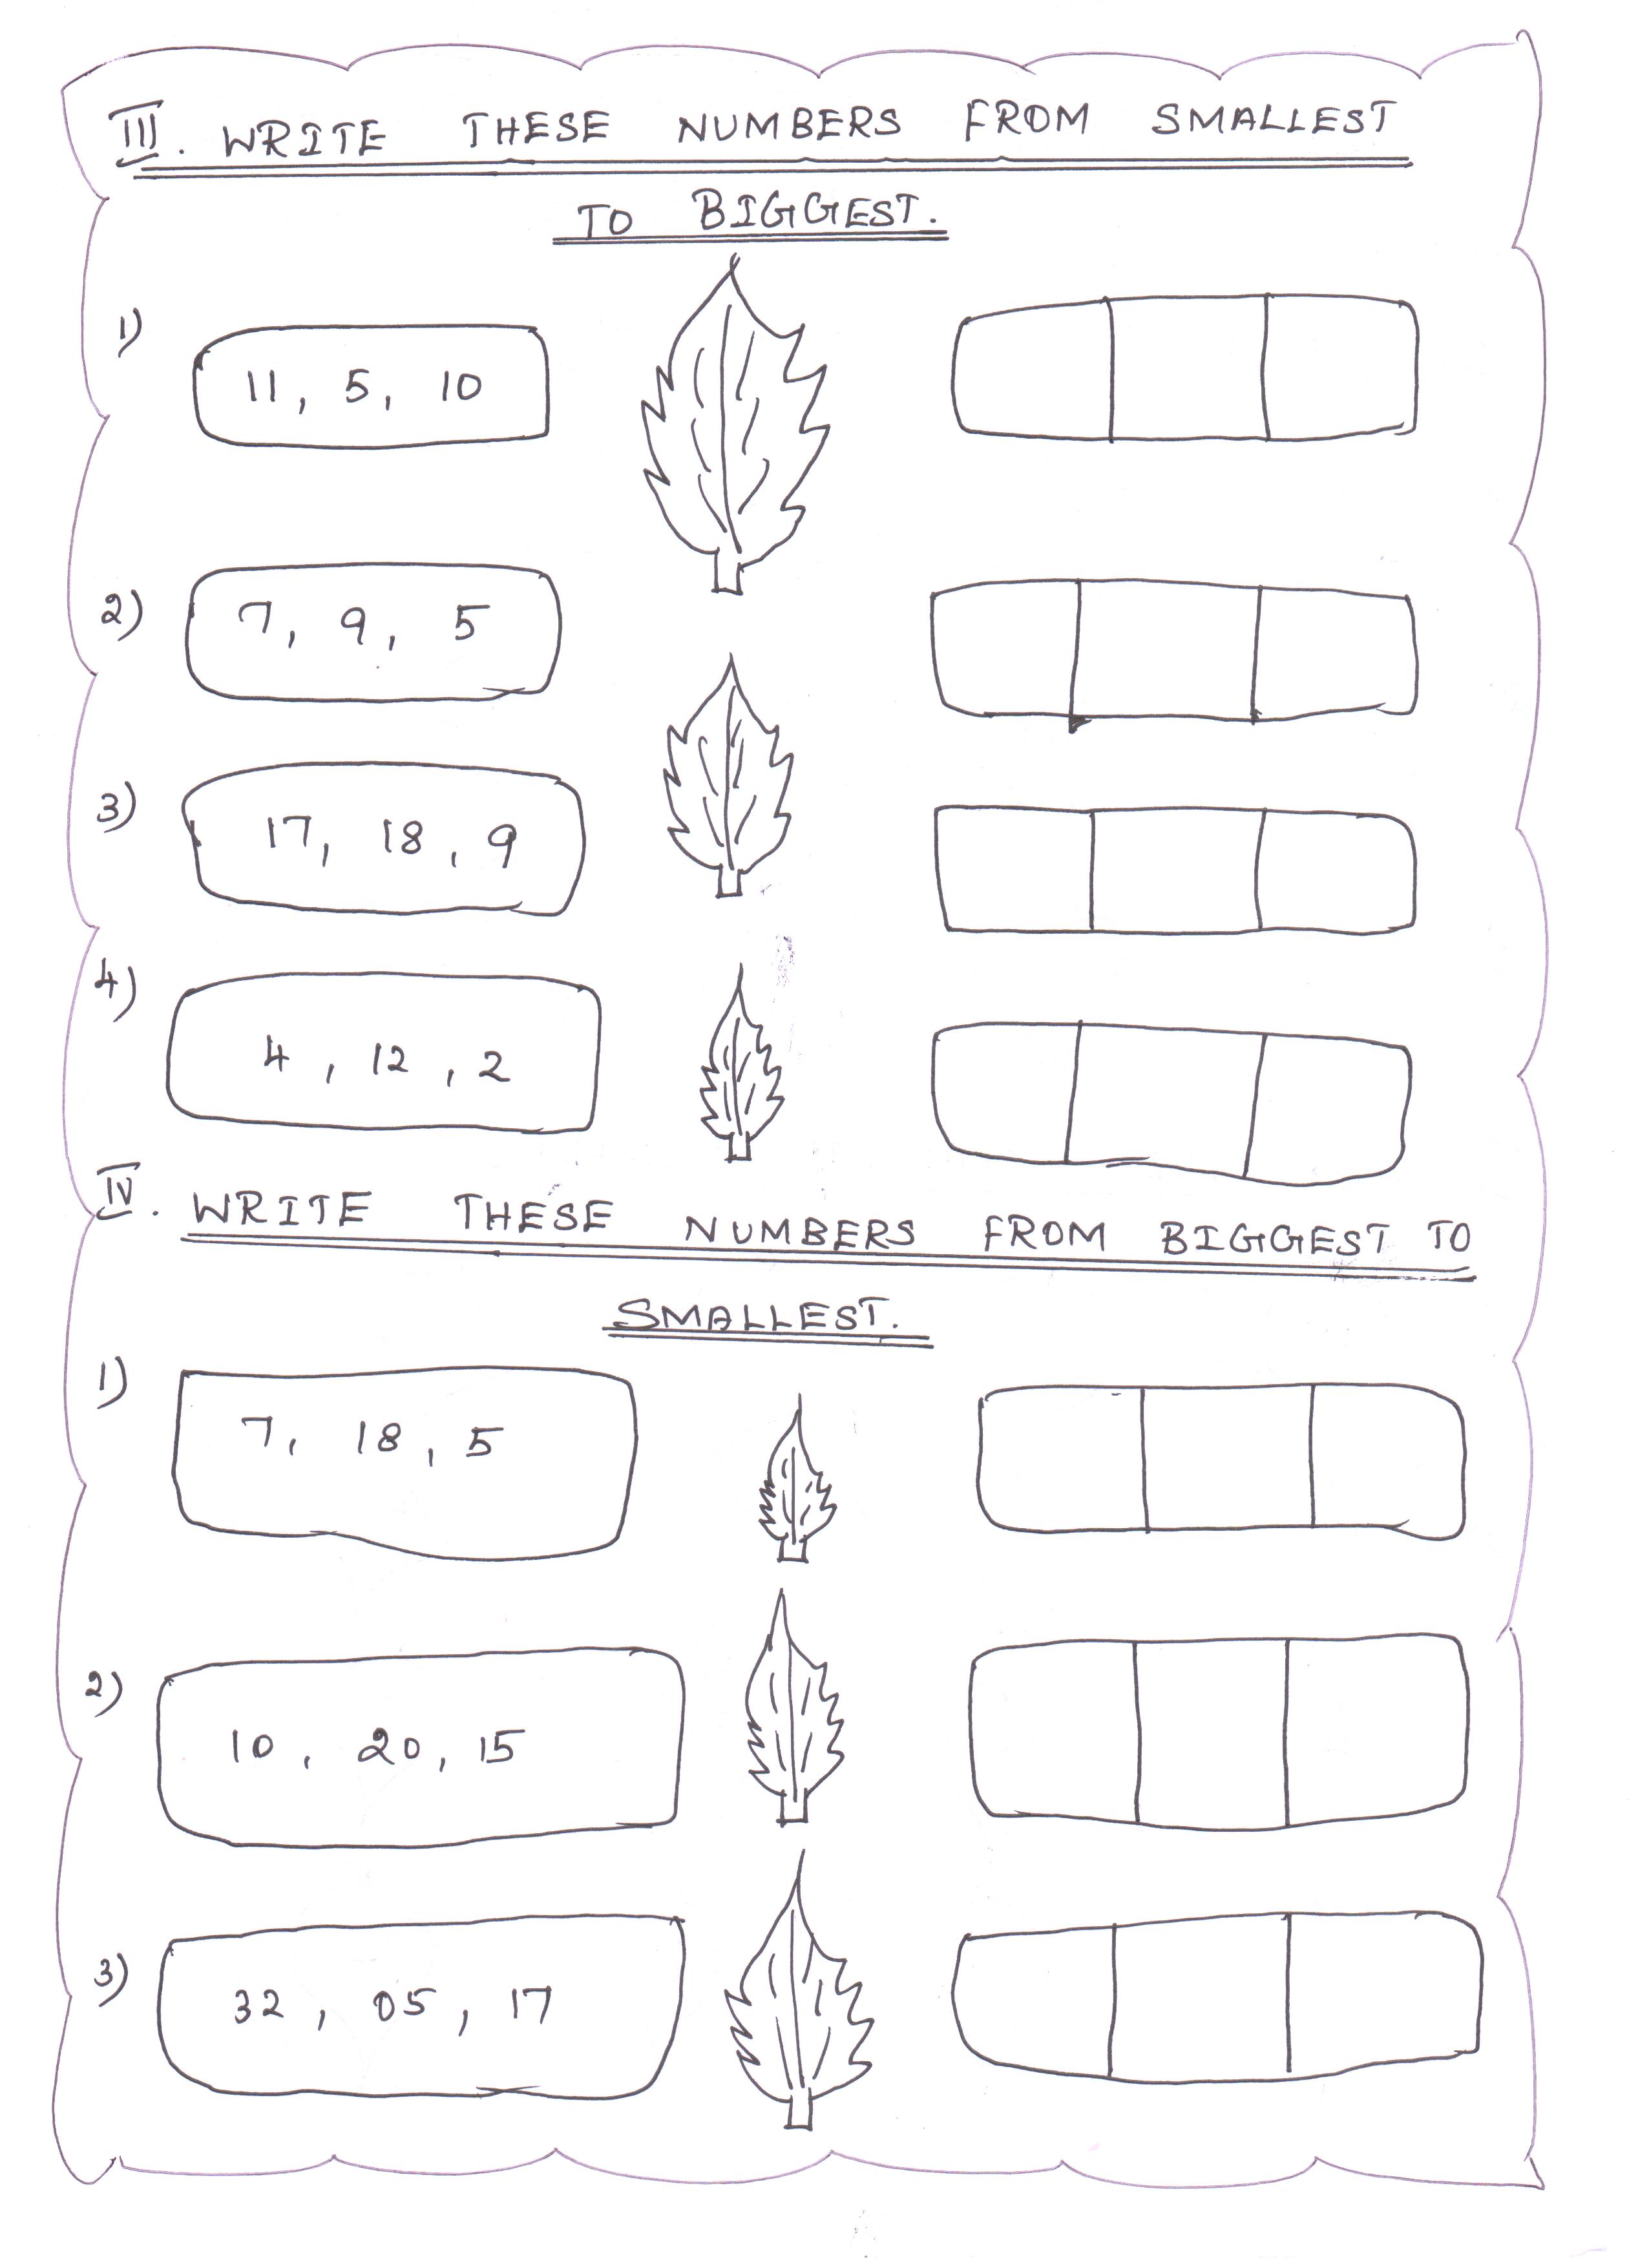 III. WRITE THESE NUMBERS FROM SMALLEST
TO BIGGEST.
1) 11, 5, 10
2) 7, 9, 5
3) 17, 18, 9
4) 4, 12, 2
IV. WRITE THESE NUMBERS FROM BIGGEST TO
SMALLEST.
1) 7, 18, 5
2) 10, 20, 15
3) 32, 05, 17